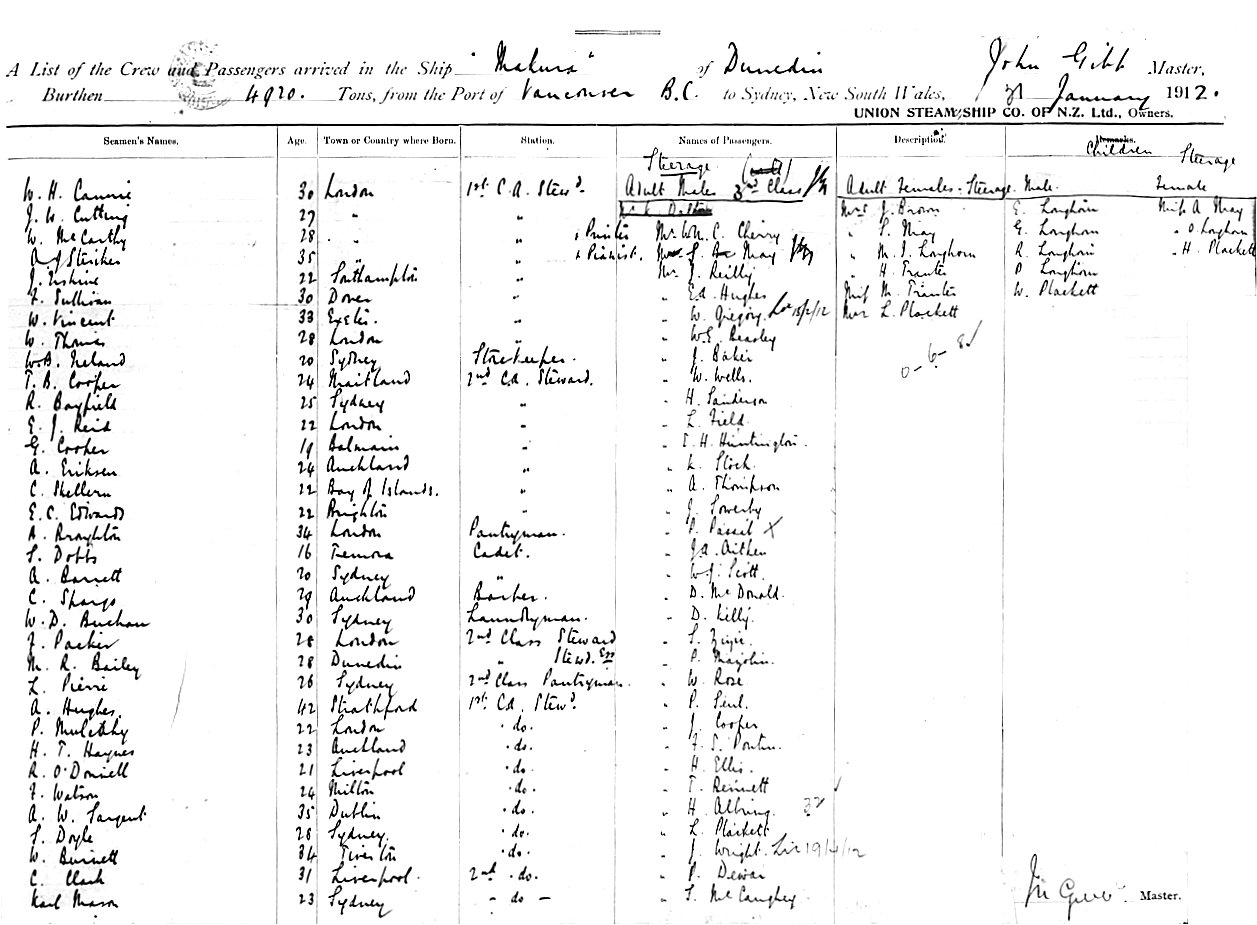 A List of the Crew and Passengers arrived in the Ship "Makura" of Dunedin John Gibb Master,
Burthen 4920. Tons, from the Port of Vancouver B.C. to Sydney, New South Wales, January 1912.
UNION STEAM SHIP CO. OF N.Z. Ltd., Owners.
Seamen's Names. Age. Town or Country where Born. Station. Names of Passengers. Description. Remarks. Children Steerage
Steerage
W. H. 30 London 1st C.A. Stewd. Adult Males 3rd Class Adult Females - Steerage Male Female
J. W. Cutting 27 " " Mrs J. Brown E. Longhorn Miss A May
W. McCarthy 28 " " + Printer Mr. Wm. C. Cherry " S. May G. Longhorn " O. Longhorn
35 " " + Pianist. May " M. J. Longhorn R. Longhorn " H. Plackett
J. Erskine 22 Southampton " Mr J. Reilly " H. Tranter P. Longhorn
F. Sullivan 30 Dover " " Ed. Hughes Miss M. Tranter W. Plackett
W. Vincent 33 Exeter. " " W. Gregory. 15/2/12 Mrs L. Plackett
W. Thomas 28 London " " W.E. Beasley
W.B. Ireland 20 Sydney Storekeeper. " J. Baker 0-6-8
T. B. Cooper 24 Maitland 2nd C.A. Steward. " W. Wells.
R. Bayfield 25 Sydney " " H. Sanderson
E. J. Reid 22 London " " L. Field.
G. Cooper 19 Balmain " " H. Huntington.
A. Eriksen 24 Auckland " " Stock.
C. Skellern 22 Bay of Islands. " " A. Thompson
E. C. Edwards 22 Brighton " " J. Sowerby
A. Broughton 34 London Pantryman. " P. X
S. Dobbs 16 Temora Cadet. " J.A. Aitken
A. Barrett 20 Sydney " " W.J. Scott.
C. Spargo 29 Auckland Barber. " D. McDonald.
W. D. Buchan 30 Sydney Laundryman. " D. Kelly.
F. Packer 28 London 2nd Class Steward "
M. R. Bailey 28 Dunedin " Stewd. Ess " P.
L. Pierre 26 Sydney 2nd Class Pantryman. " W. Rose
A. Hughes. 42 Strathford 1st. C.A. Stewd. " P.
P. 22 London . do. " J. Cooper
H. T. Haynes 23 Auckland . do. " F. S.
R. O'Donnell 21 Liverpool . do. " H. Ellis.
F. Watson 24 Milton . do. " T. Bennett
A. W. Sargent 35 Dublin . do. " H.
S. Doyle 28 Sydney. . do. " L. Plackett
W. Burnett 34 . do. " J. Wright. 19/4/12
C. Clark 31 Liverpool. 2nd . do. " P. Dewar
Karl Mason 23 Sydney - do - " S. McCaughey.
Master.